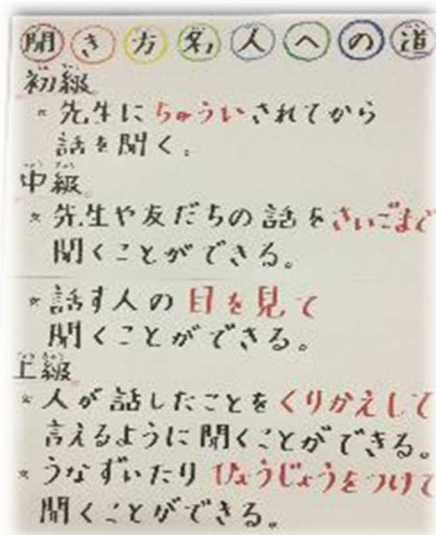 聞き方名人への道
初級
先生にちゅういされてから
話を聞く。
中級
* 先生や友だちの話をさいごまで
聞くことができる。
* 話す人の目を見て
聞くことができる。
上級
* 人が話したことをくりかえして
言えるように聞くことができる。
* うなずいたりひょうじょうをつけて
聞くことができる。